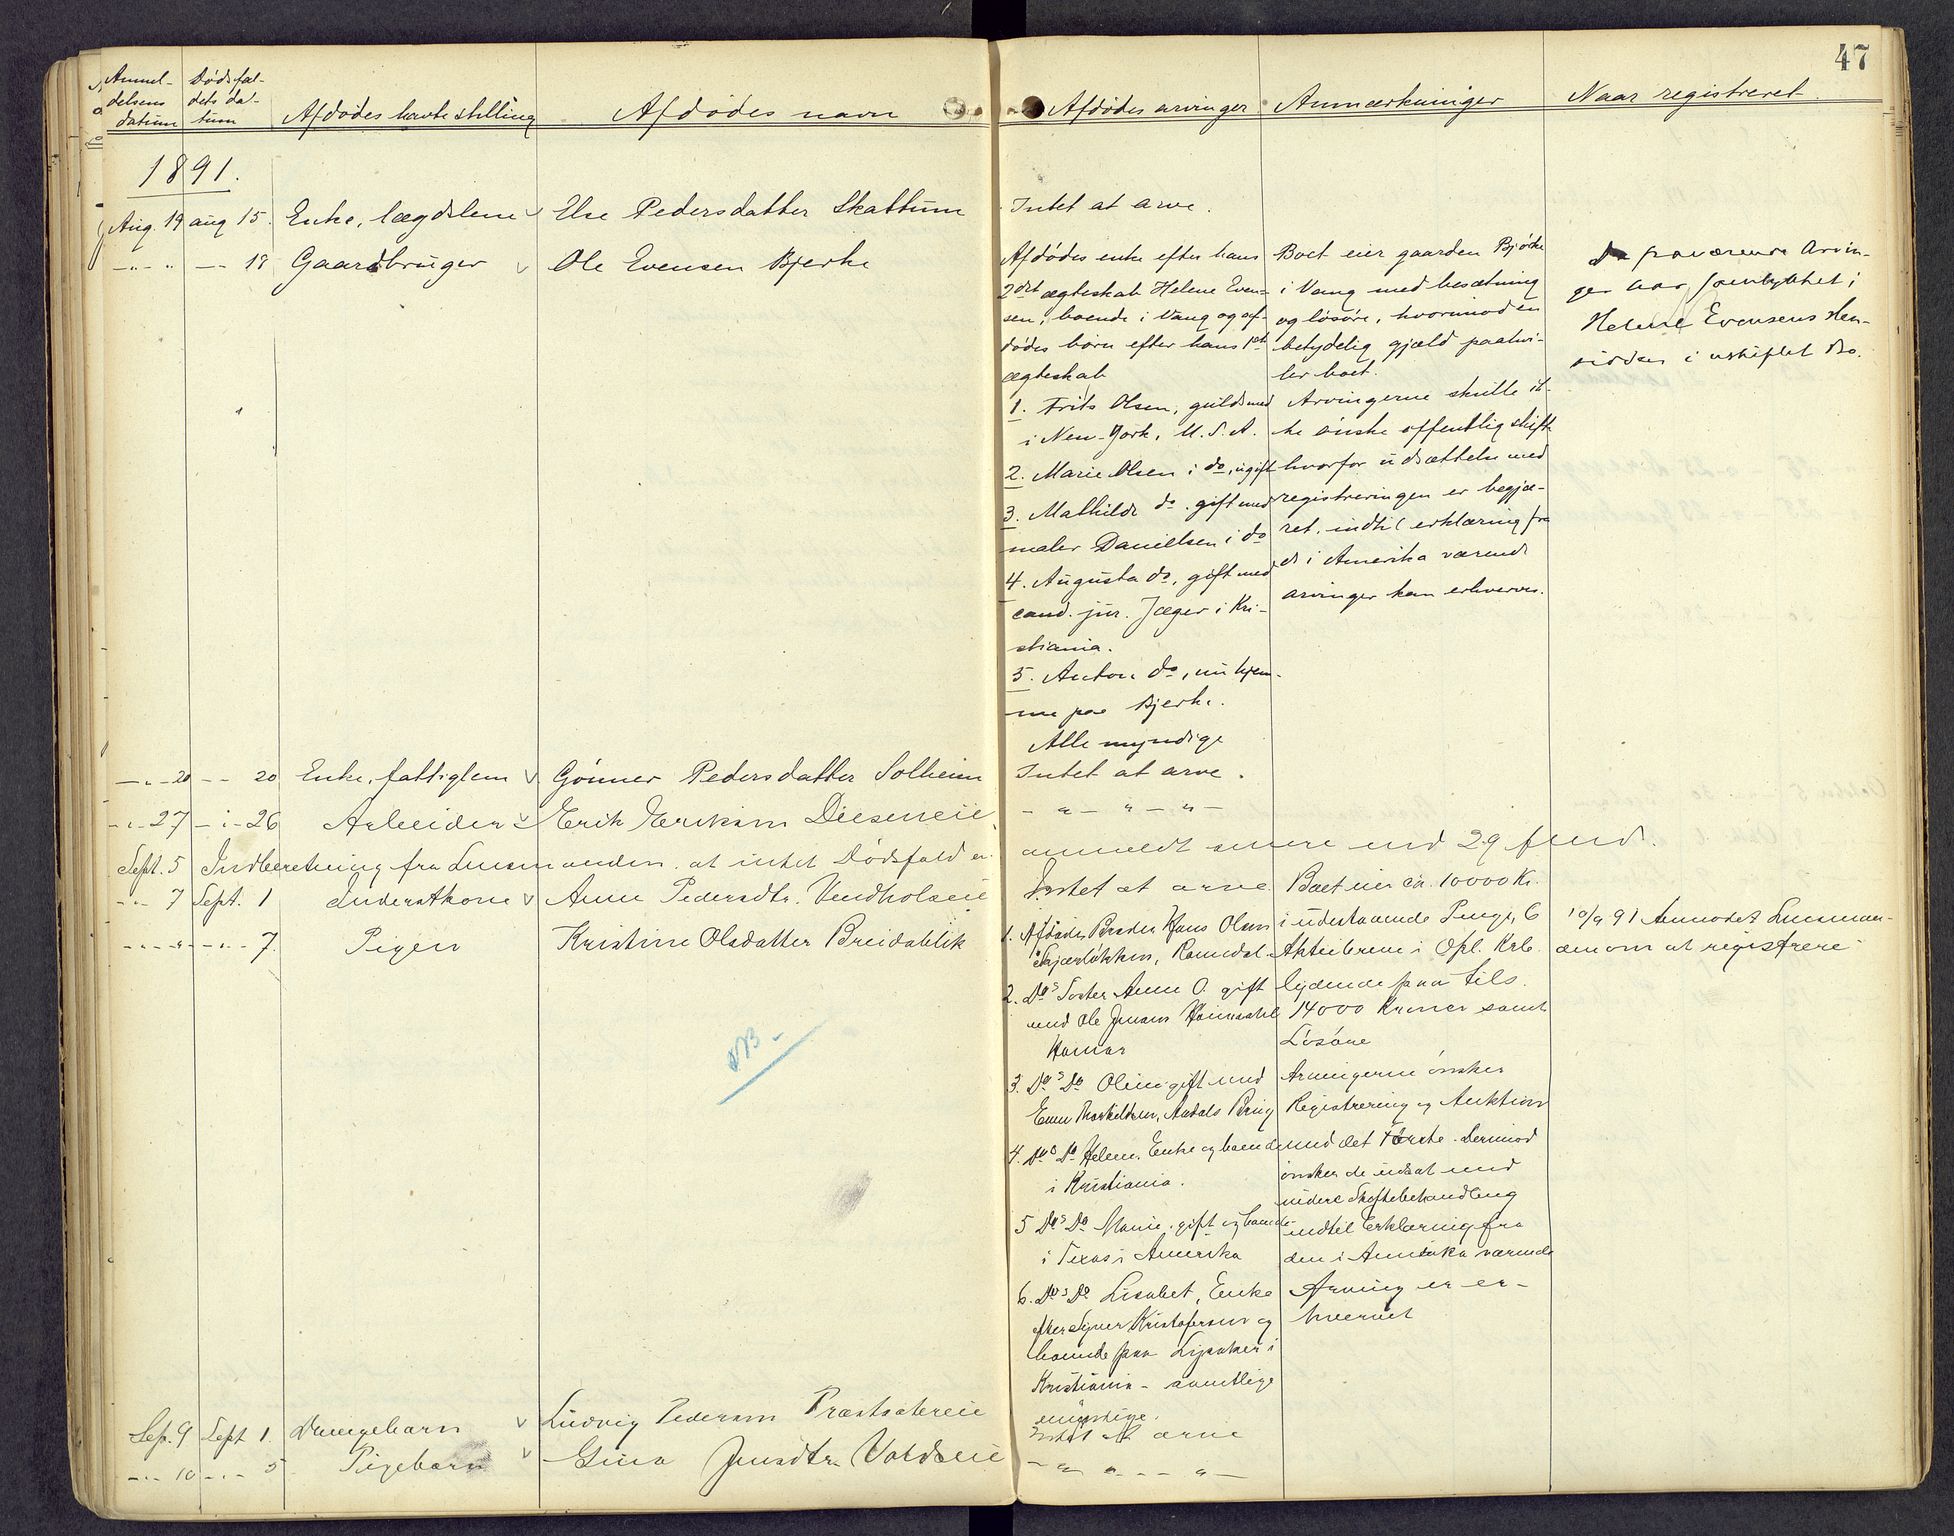 47
Anmel-
delsens
datum
Dødsfal-
dets da-
tum
Afdødes havte stilling
Afdødes navn
Afdødes arvinger
Anmærkninger
Naar registreret
1891.
Aug. 19 aug 15. Enke, lægdslem Else Pedersdatter Skattum
Intet at arve.
-"- " -"- 18 Gaardbruger Ole Evensen Bjerke
Afdødes enke efter hans
2det ægteskab Helene Even-
sen, boende i Vang og af-
dødes børn efter hans 1ste
ægteskab
1. Frits Olsen, guldsmed
i New-York, U.S.A.
2. Marie Olsen i do, ugift
3. Mathilde do. gift med
maler Daniellsen i do
4. Augusta do, gift med
cand. jur. Jæger i Kri-
stiania.
5. Anton do, nu hjem-
me paa Bjerke.
Alle myndige
Boet eier gaarden Bjørke
i Vang med besætning
og løsøre, hvorimod en
betydelig gjæld paahvi-
ler boet.
Arvingerne skulle ik-
ke ønske offentlig skifte
hvorfor udsættelse med
registreringen er begjæ-
ret, indtil erklæring fra
de i Amerika værende
arvinger kan erhverves.
De fraværende Arvin-
ger har samtykket i
Helene Evensens Hen-
sidden i uskiftet Bo.
-"- 20 -"- 20 Enke, fattiglem Gunner Pedersdatter Solheim
Intet at arve.
-"- 27 -"- 26 Arbeider Erik Eriksen Dieseneie
-"- " - " -
Sept. 5 Indberetning fra Lensmanden, at intet Dødsfald er
anmeldt mere end 29 fund.
-"- 7 Sept. 1 Inderstkone Anne Pedersdtr. Vendholseie
Intet at arve.
-"- " -"- 7. Pigen Kristine Olsdatter Breidablik
1. Afdødes Broder Hans Olsen
Skjærløkken, Romedal.
2. Dos Søster Anne O. gift
med Ole Jensen
Hamar
3. Dos Do Oline gift med
4. Dos Do Helene, Enke og boende
i Kristiania.
5 Dos Do Marie, gift og boende
i Texas i Amerika
6. Dos Do Lisabet, Enke
efter Kristofersen og
boende paa Lysaker i
Kristiania - samtlige
myndige.
Boet eier ca. 10000 Kr.
i udestaaende Penge, 6
Aktiebreve i Opl. Krb.
lydende paa tils.
14000 Kroner samt
Løsøre
Arvingerne ønsker
Registrering og Auktion
med det første. Derimod
ønsker de udsat med
videre Skiftebehandling
indtil Erklæring fra
den i Amerika værende
Arving er er-
hvervet
10/9 91 Anmodet Lensman-
den om at registrere
NB.
Sep. 9 Sept 1. Drengebarn Ludvig Pedersen Præstsætereie
Intet at arve
-"- 10 -"- 5 Pigebarn Gina Jensdtr. Voldseie
- " - " - " -